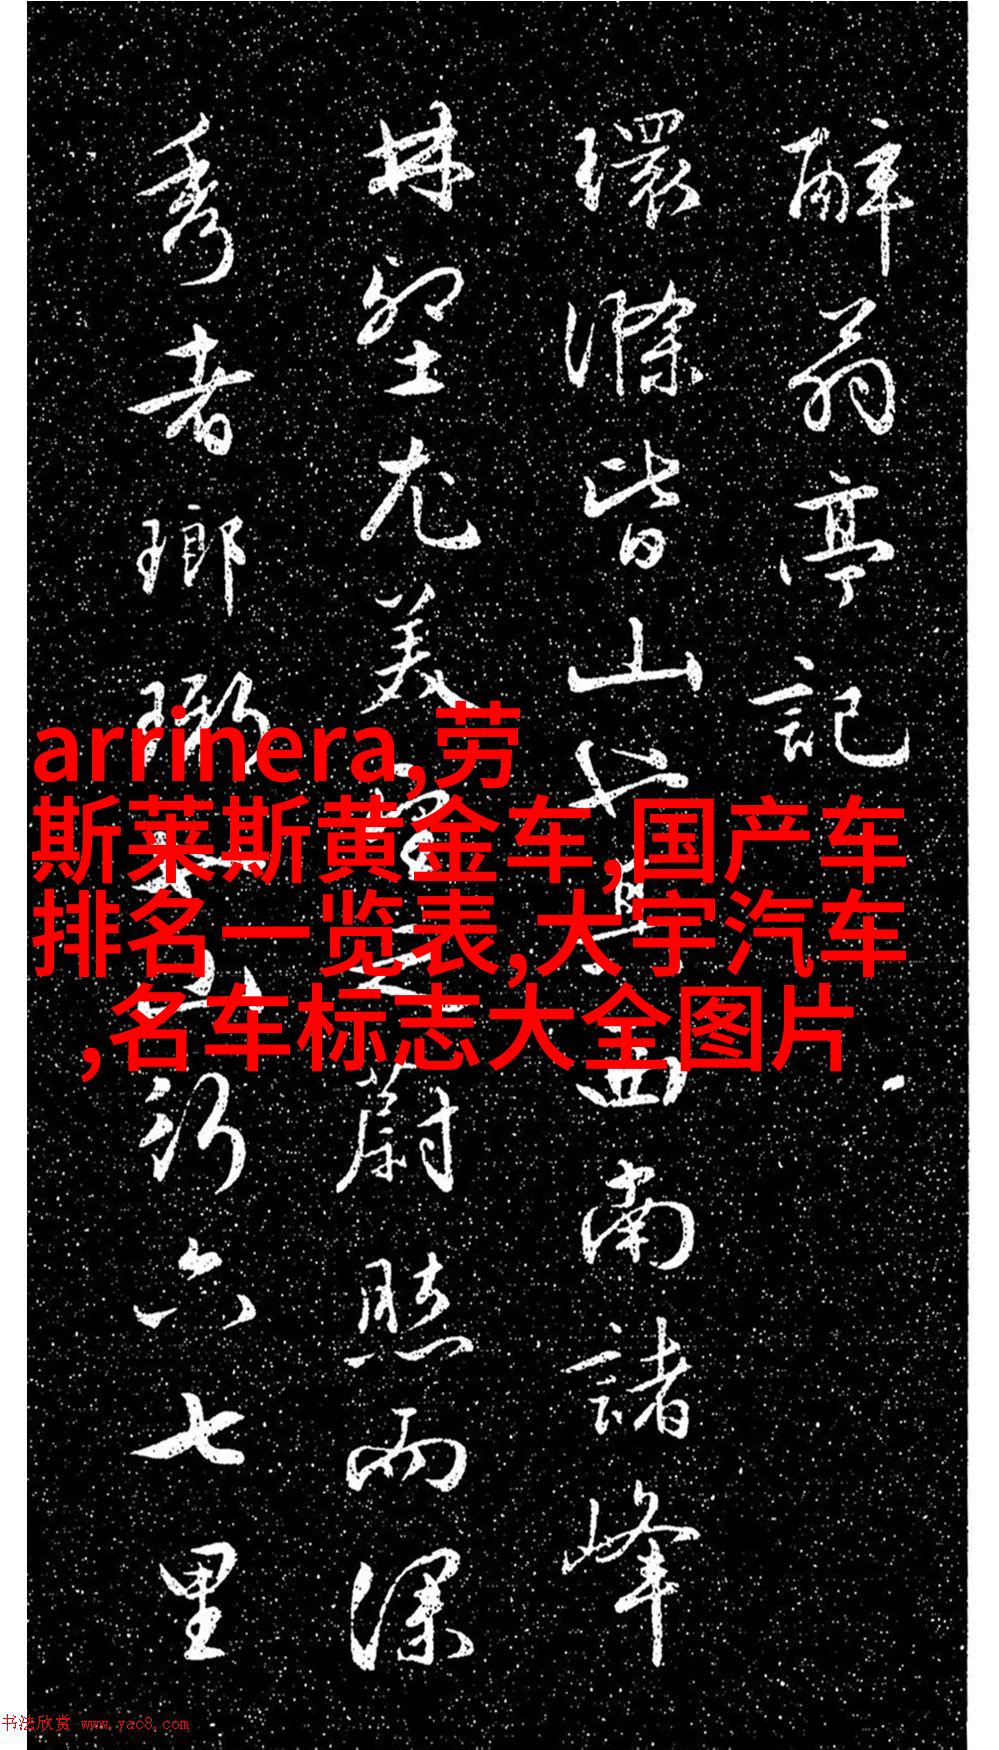 醉翁亭記
環滁皆山也其西南諸峰
林壑尤美望之蔚然而深
秀者瑯琊也山行六七里
arrinera,劳
斯莱斯黄金车,国产车
排名一览表,大宇汽车
,名车标志大全图片
书法欣赏 www.yac8.com